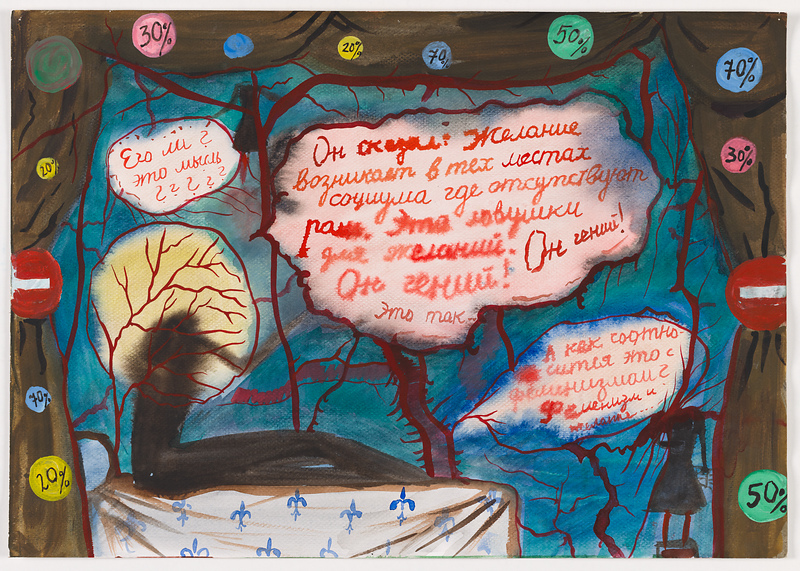 30%
20%
70%
50%
70%
20%
30%
70%
20%
50%
Его ли?
это мысль
? ? ? ? ?
Он сказал: Желание
возникает в тех местах
социума где отсутствуют
Это ловушки
для желаний. Он гений!
Он гений!
Это так...
А как соотно-
сится это с
феминизмом?
Феменизм и